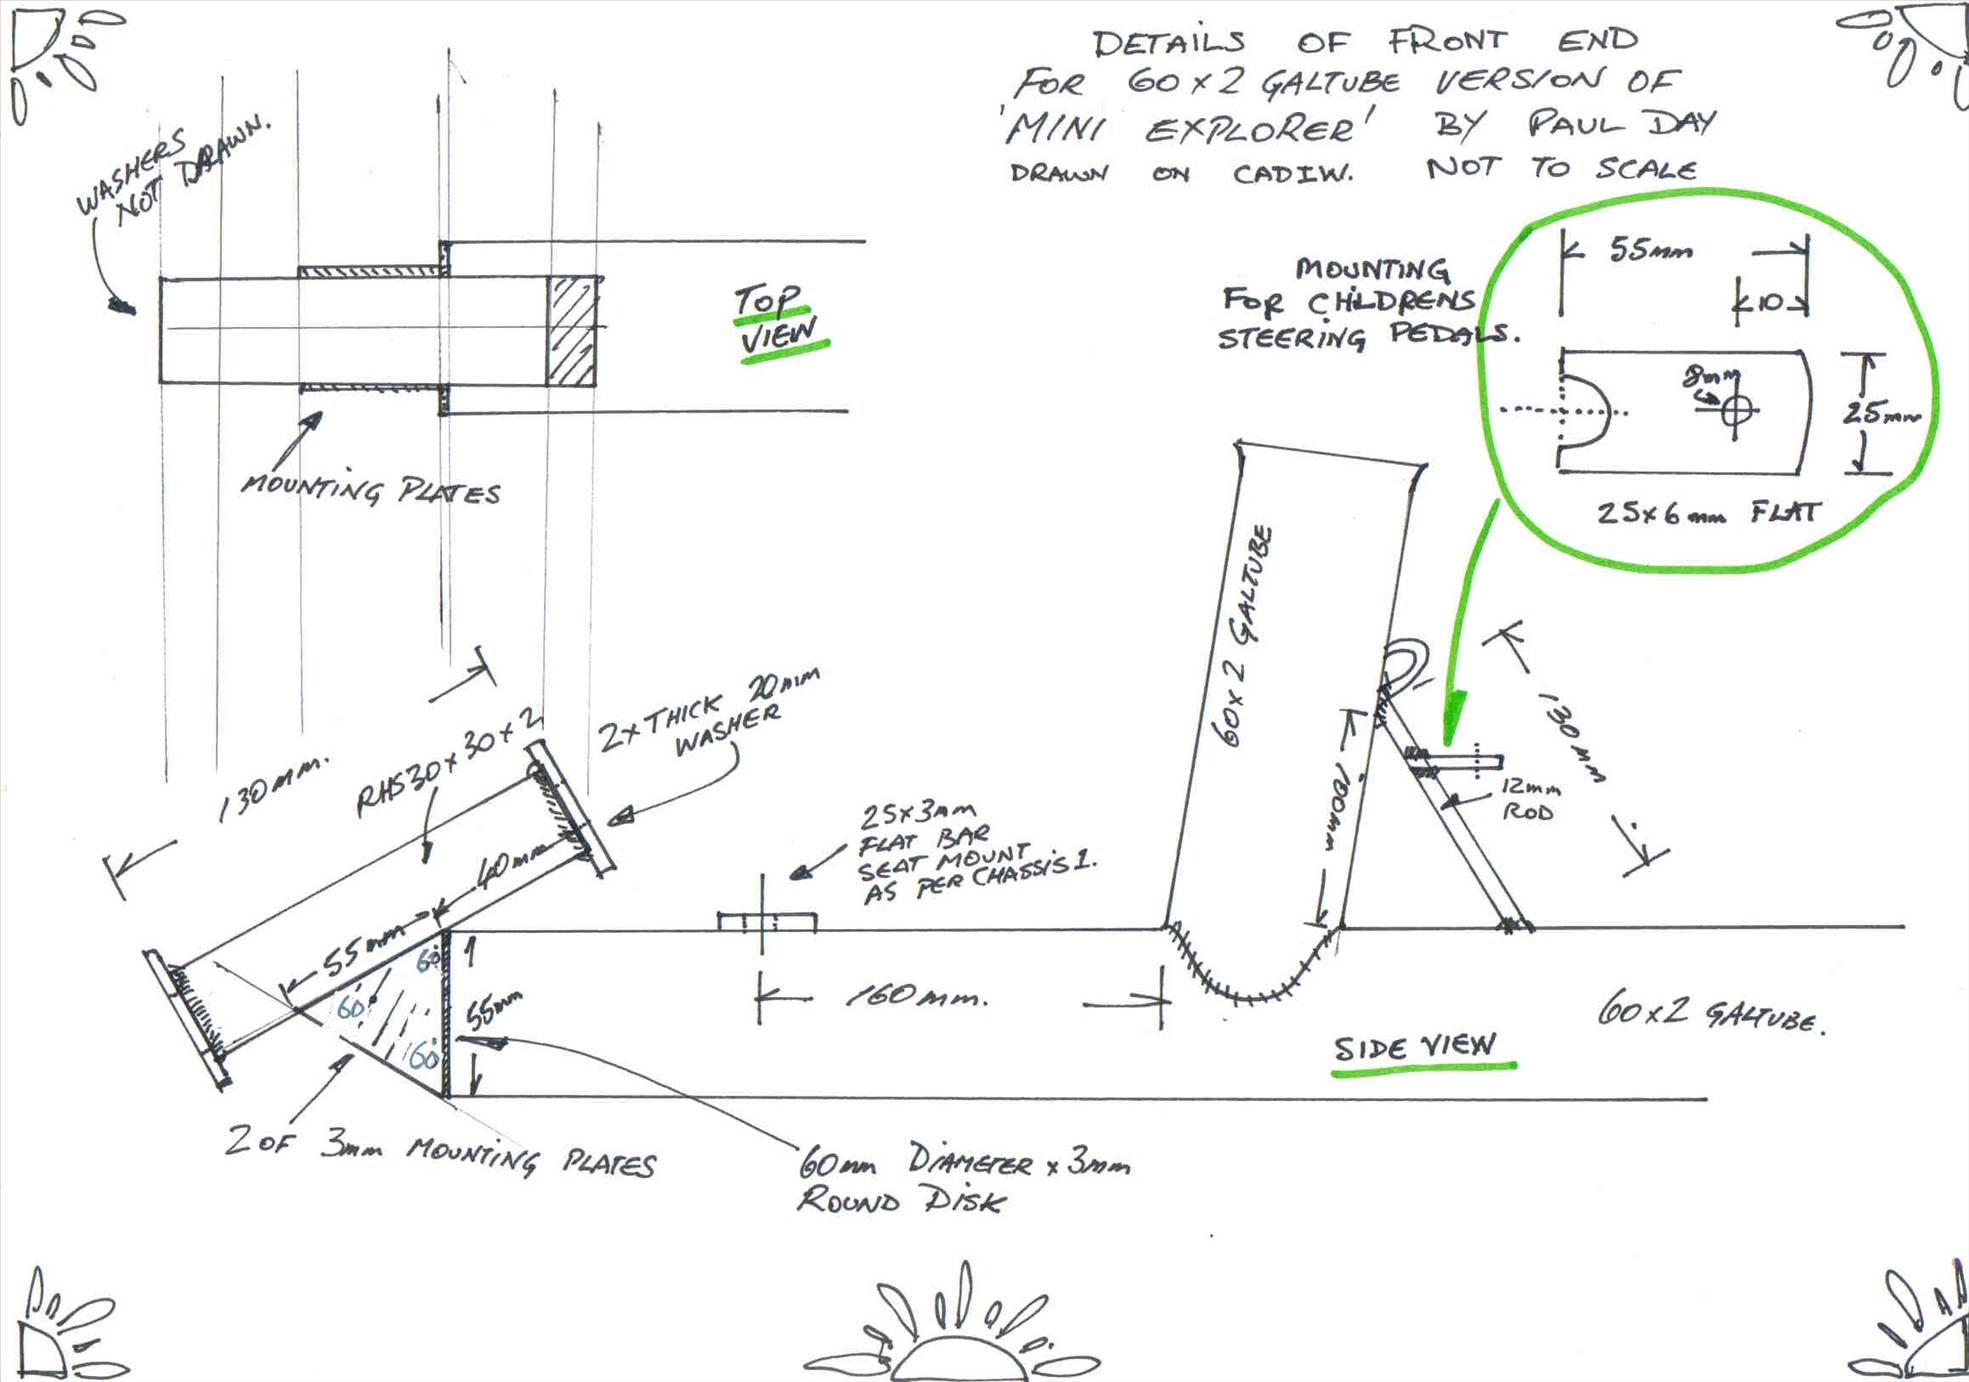 DETAILS OF FRONT END
FOR 60x2 GALTUBE VERSION OF
'MINI EXPLORER' BY PAUL DAY
DRAWN ON CADIW. NOT TO SCALE
WASHERS
NOT DRAWN.
TOP
VIEW
MOUNTING PLATES
MOUNTING
FOR CHILDRENS
STEERING PEDALS.
55mm
10
8mm
25mm
25x6mm FLAT
60x2 GALTUBE
100mm
130mm
12mm
ROD
130mm.
RHS30x30x2
2x THICK 20mm
WASHER
40mm
55mm
60°
60°
60°
55mm
25x3mm
FLAT BAR
SEAT MOUNT
AS PER CHASSIS 1.
160mm.
60x2 GALTUBE.
SIDE VIEW
2 OF 3mm MOUNTING PLATES
60mm DIAMETER x 3mm
ROUND DISK